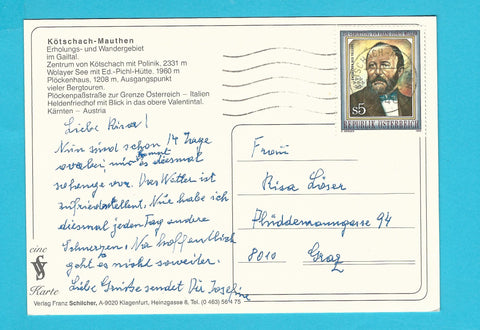 Kötschach-Mauthen
Erholungs- und Wandergebiet
im Gailtal.
Zentrum von Kötschach mit Polinik, 2331 m
Wolayer See mit Ed.-Pichl-Hütte, 1960 m
Plöckenhaus, 1208 m, Ausgangspunkt
vieler Bergtouren.
Plöckenpaßstraße zur Grenze Österreich – Italien
Heldenfriedhof mit Blick in das obere Valentintal.
Kärnten – Austria
s5
REPUBLIK ÖSTERREICH
Liebe Risa!
Nun sind schon 14 Tage
vorbei, mir kommt es diesmal
solange vor. Das Wetter ist
zufriedenstellend, Nur habe ich
diesmal jeden Tag andere
Schmerzen, Na hoffentlich
geht es nicht so weiter.
Liebe Grüße sendet Dir Josefine
Frau
Risa Löser
Plüddemanngasse 94
8010 Graz
eine
VS
Karte
Verlag Franz Schilcher, A-9020 Klagenfurt, Heinzgasse 8, Tel. (0 463) 56 4 75